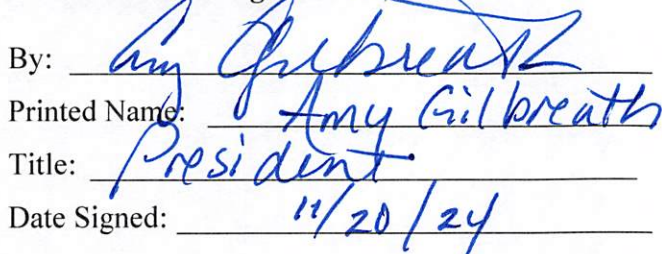 By: Amy Gilbreath
Printed Name: Amy Gilbreath
Title: President
Date Signed: 11/20/24